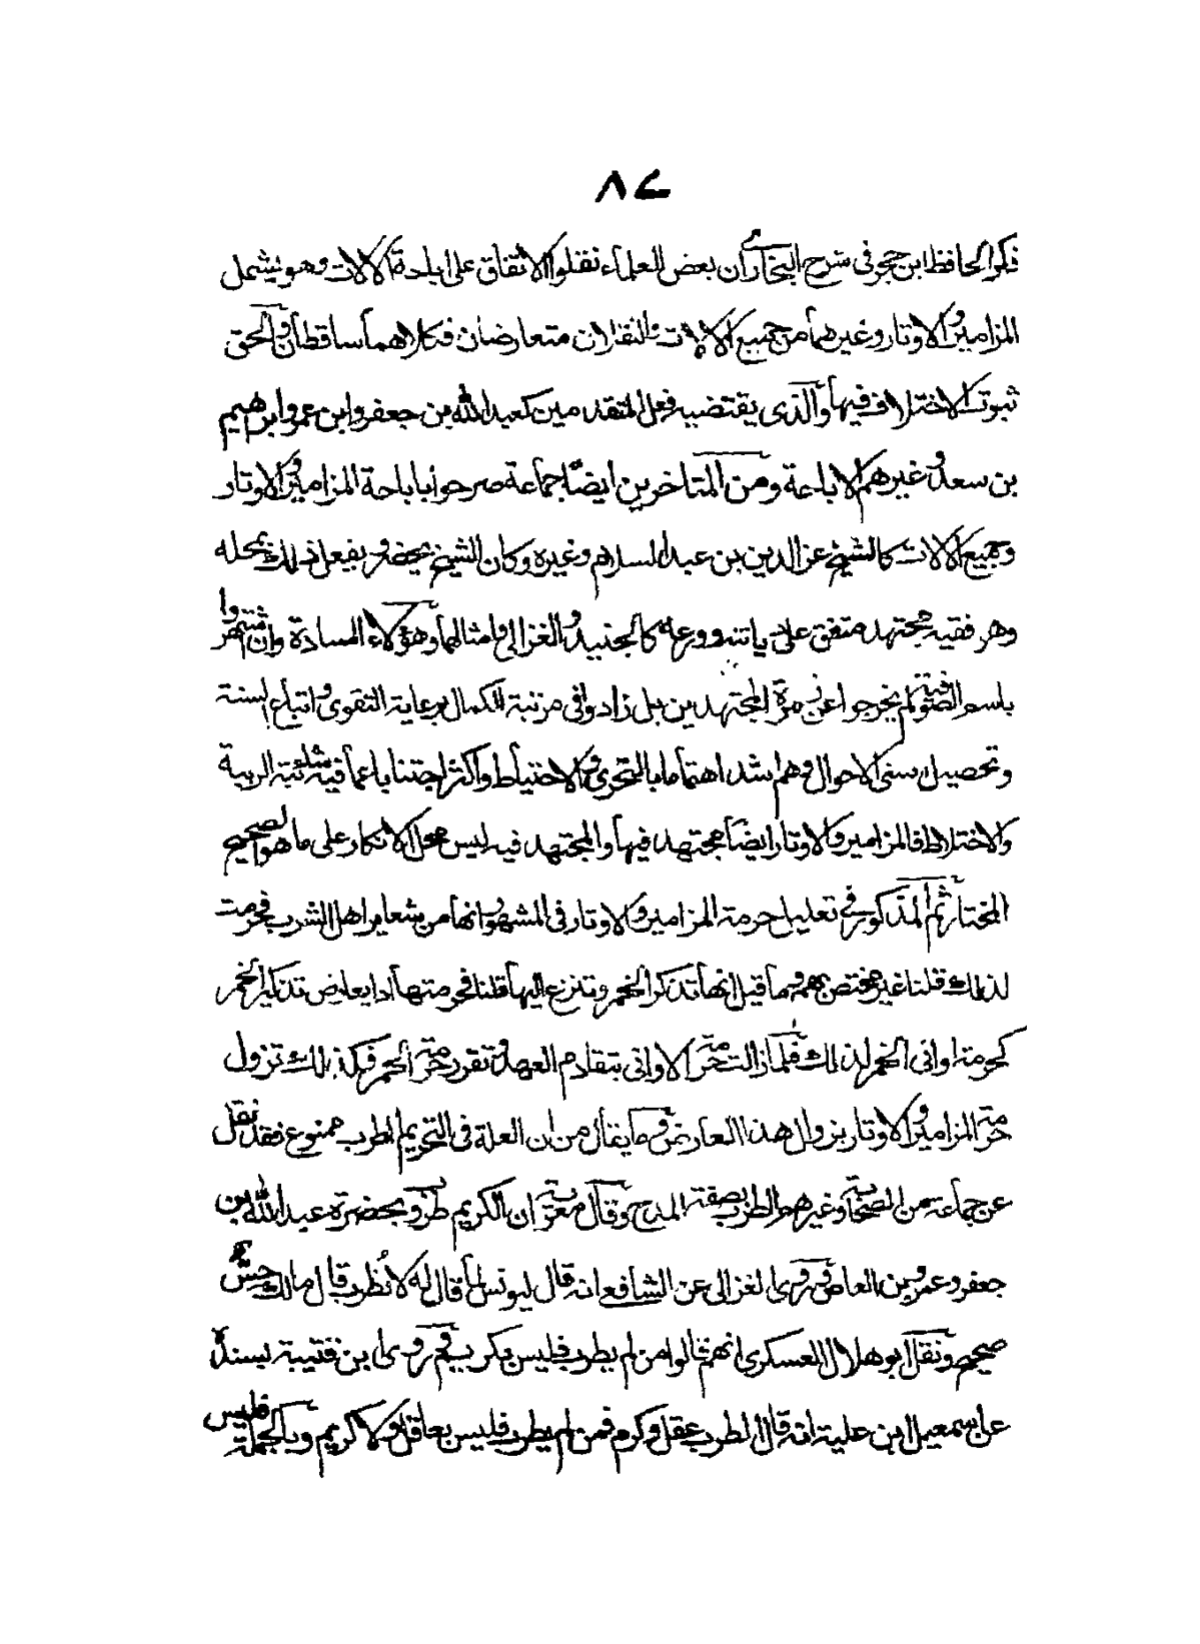 ٨٤
ذكر الحافظ ابن حجر في شرح البخاري أن بعض العلماء نقلوا الاتفاق على اباحة الآلات وهو يشمل
المزامير والاوتار وغيرهما من جميع الآلات والنقلان متعارضان فكلاهما ساقطان والحق
ثبوت الاختلاف فيها والذى يقتضيه فعل المتقدمين كعبد الله بن جعفر وابن عمر وابرهيم
بن سعد وغيرهم الاباحة ومن المتاخرين ايضا جماعة صرحوا باباحة المزامير والاوتار
وجميع الآلات كالشيخ عز الدين بن عبد السلام وغيره وكان الشيخ يحضر ويفعل ذلك بمحله
وهو فقيه مجتهد متفق على ديانته وورعه كالجنيد والغزالى وامثالهما وهؤلاء السادة وان اشتهروا
باسم الصوفية لم يخرجوا عن زمرة المجتهدين بل زادوا فى مرتبة الكمال برعاية التقوى واتباع السنة
وتحصيل سنى الاحوال وهم اشد اهتماما بالتحرى والاحتياط واكثر اجتنابا عما فيه شائبة الريبة
والاختلاط فالمزامير والاوتار ايضا مجتهد فيها والمجتهد فيه ليس محل الانكار على ما هو الصحيح
المختار ثم المذكور في تعليل حرمة المزامير والاوتار فى المشهور انها من شعاير اهل الشرب فحرمت
لذلك قلنا غير مختص بهم وما قيل انها تذكر الخمر وتنزع اليها قلنا فحرمتها اذا بعارض تذكير الخمر
كحرمة اوانى الخمر لذلك فلما زالت حرمة الاوانى بتقادم العهد وتقرر حرمة الخمر فكذلك تزول
حرمة المزامير والاوتار بزوال هذا العارض وما يقال من ان العلة فى التحريم الطرب ممنوع فقد نقل
عن جماعة من الصحابة وغيرهم الطرب بصفة المدح وقال معوية ان الكريم طروب بحضرة عبد الله بن
جعفر وعمرو بن العاص وروى الغزالى عن الشافعى انه قال ليونس لما قال له لا أطرب قال مالك حس
صحيح ونقل ابو هلال العسكرى انهم قالوا من لم يطرب فليس بكريم وروى ابن قتيبة بسنده
عن اسمعيل ابن علية انه قال الطرب عقل وكرم فمن لم يطرب فليس بعاقل ولا كريم وبالجملة فليس